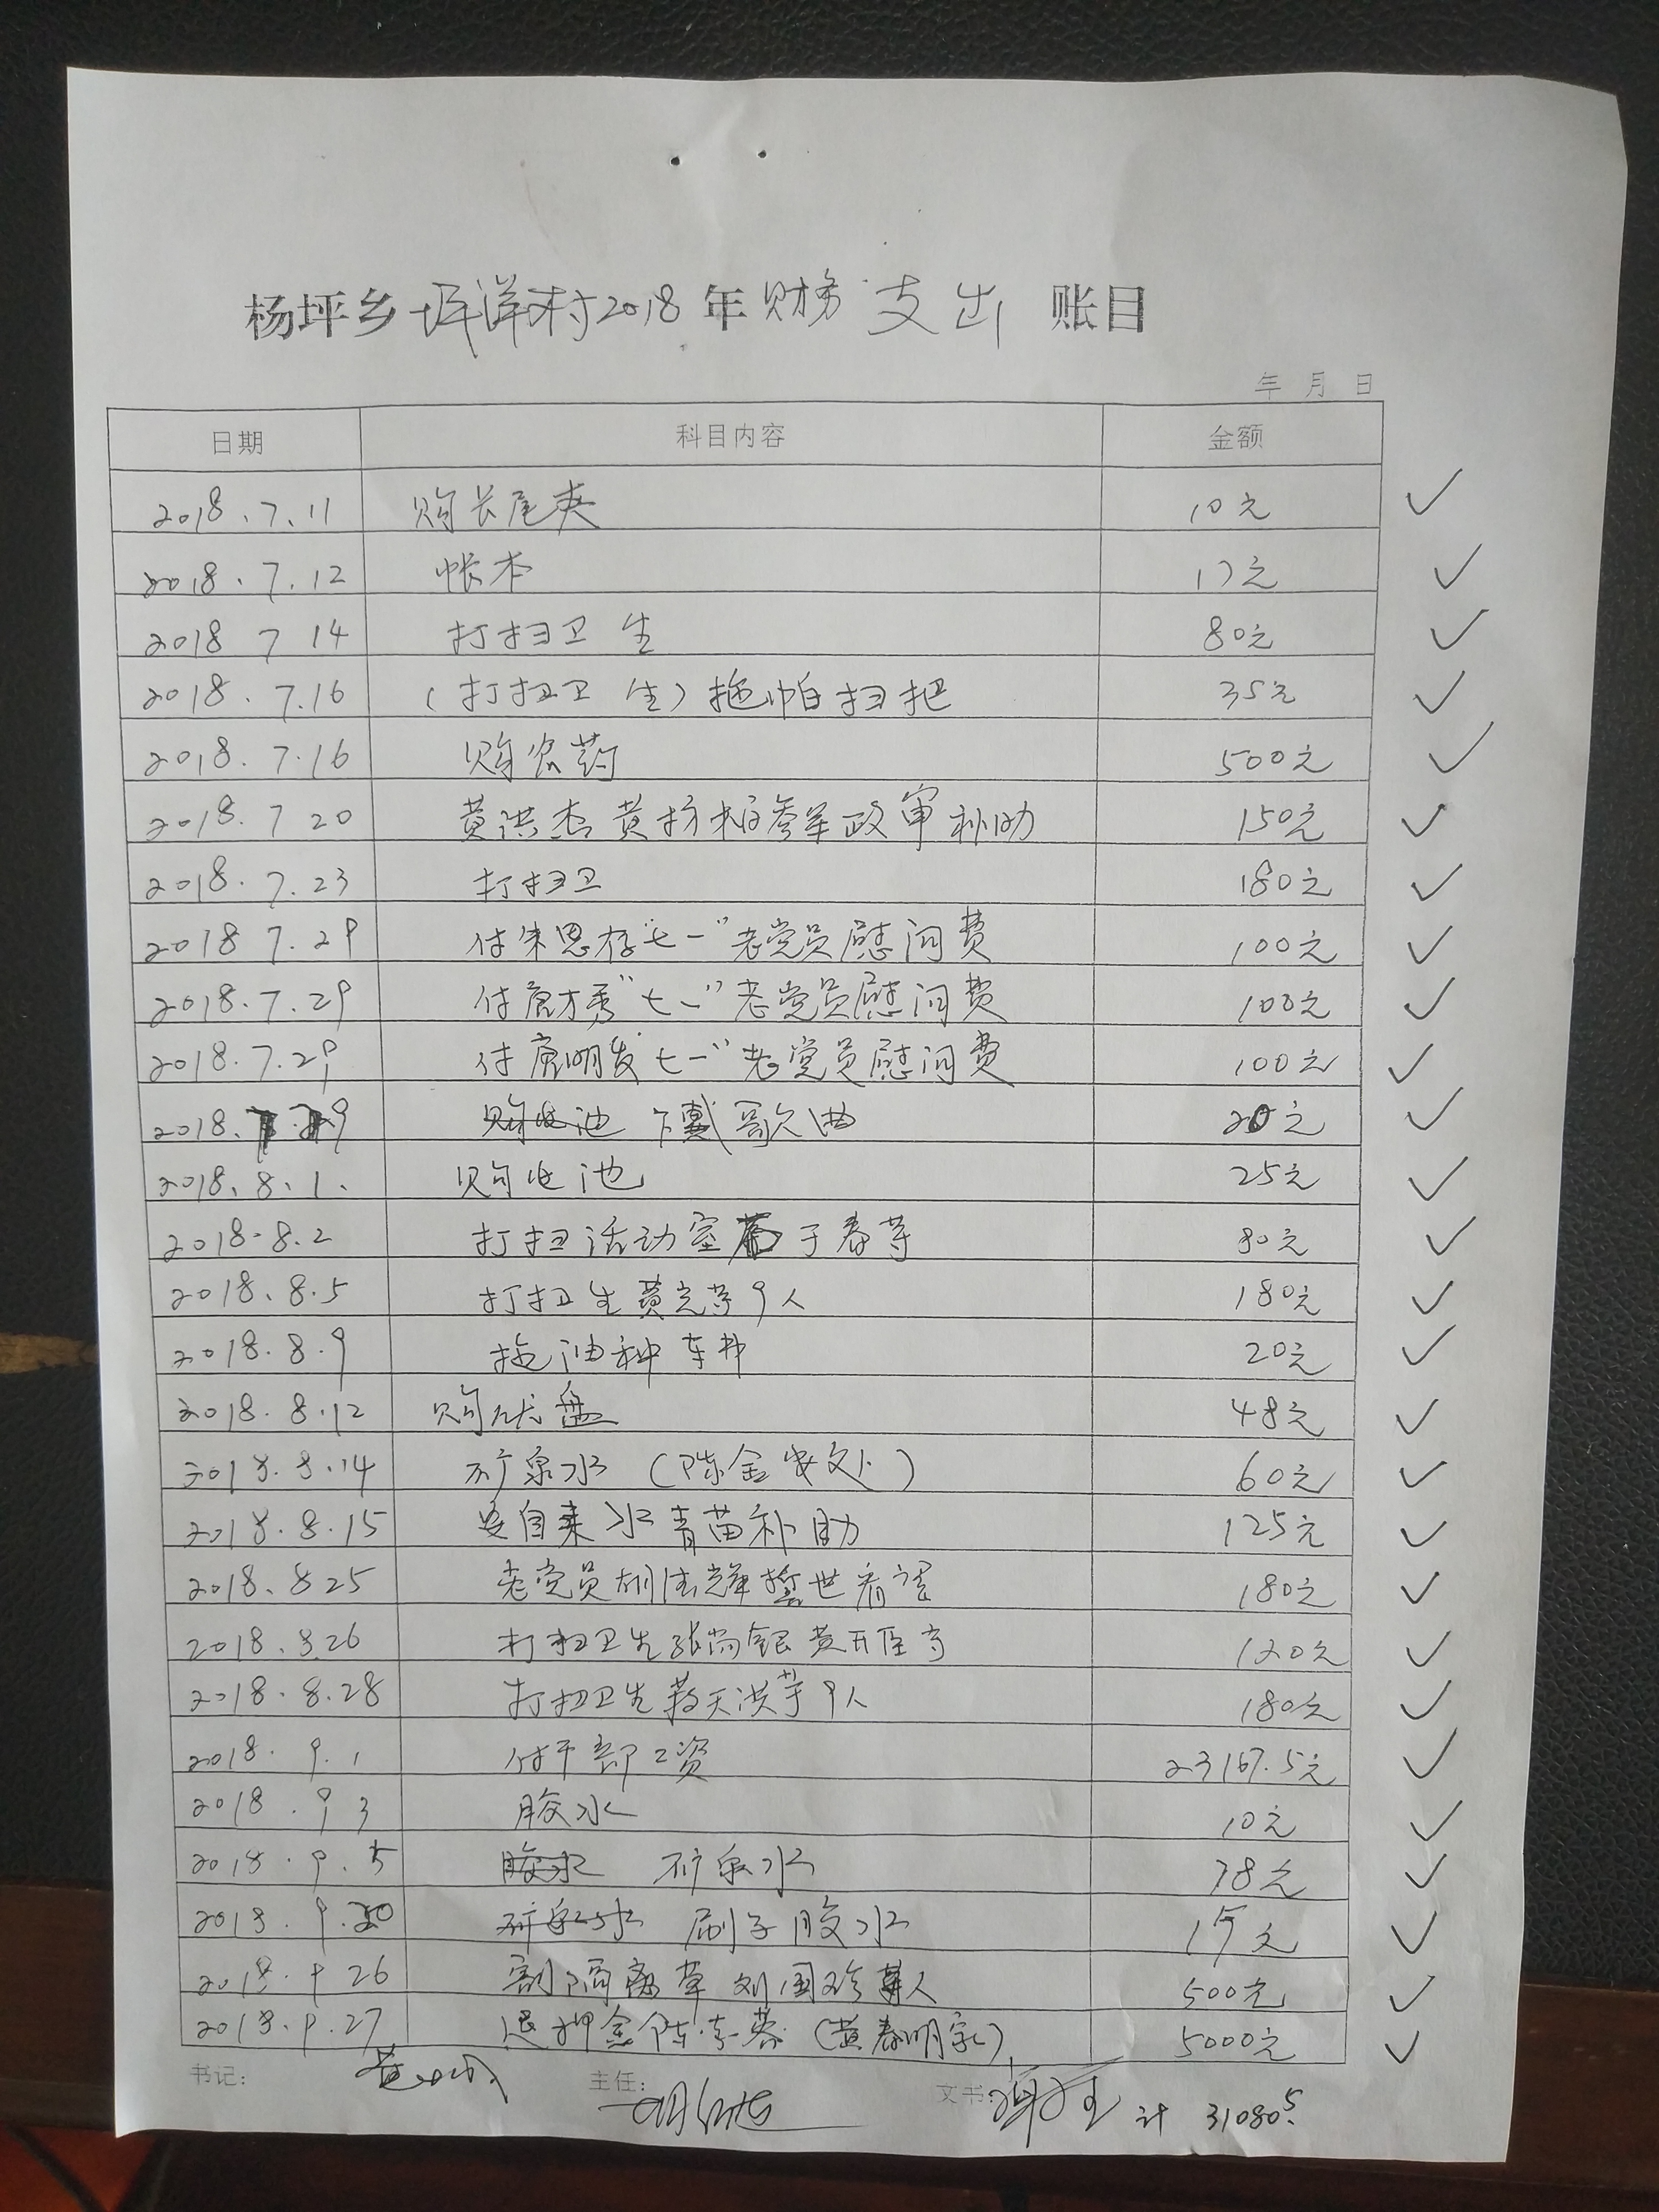 杨坪乡坪洋村2018年财务支出账目
年 月 日
日期 科目内容 金额
2018.7.11 购长尾夹 10元
2018.7.12 帐本 17元
2018 7 14 打扫卫生 80元
2018.7.16 (打扫卫生)拖帕扫把 35元
2018.7.16 购农药 500元
2018.7 20 黄洪杰黄 参军政审补助 150元
2018.7.23 打扫卫 180元
2018 7.29 付朱思存"七一"老党员慰问费 100元
2018.7.29 付唐才秀"七一"老党员慰问费 100元
2018.7.29 付唐明发"七一"老党员慰问费 100元
2018.7.29 下戴歌曲 20元
2018.8.1. 购电池 25元
2018.8.2 打扫活动室 于春等 80元
2018.8.5 打扫卫生黄 等9人 180元
2018.8.9 拖油种车费 20元
2018.8.12 购优盘 48元
2018.8.14 矿泉水(陈金安处) 60元
2018.8.15 安自来水青苗补助 125元
2018.8 25 老党员胡 辉 世看望 180元
2018.8.26 打扫卫生张尚银黄 120元
2018.8.28 打扫卫生 天洪等9人 180元
2018.9.1 付干部工资 23167.5元
2018.9 3 胶水 10元
2018.9.5 胶水 矿泉水 78元
2018.9.20 矿泉水 刷子胶水 15元
2018.9 26 割隔离草刘国珍 人 500元
2018.9.27 退押金陈 蓉(黄春明家) 5000元
书记: 主任: 文书: 计 31080.5